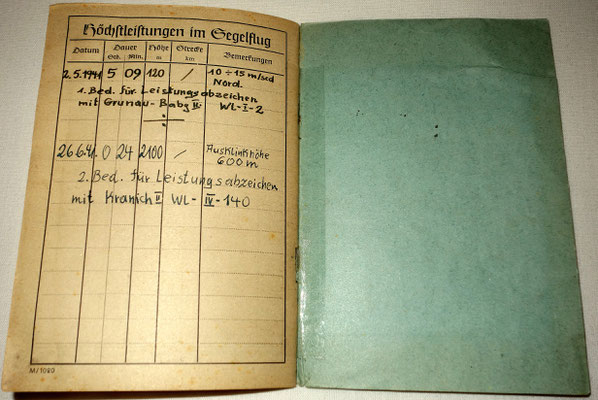 Höchstleistungen im Segelflug
Datum Dauer Höhe Strecke Bemerkungen
Std. Min. m km
2.5.1941 5 09 120 / 10 ÷ 15 m/sec
Nord.
1. Bed. für Leistungsabzeichen
mit Grunau-Baby II WL-I-2
26.6.41. 0 24 2100 / Ausklinkhöhe
600 m
2. Bed. für Leistungsabzeichen
mit Kranich II WL-IV-140
M/1090